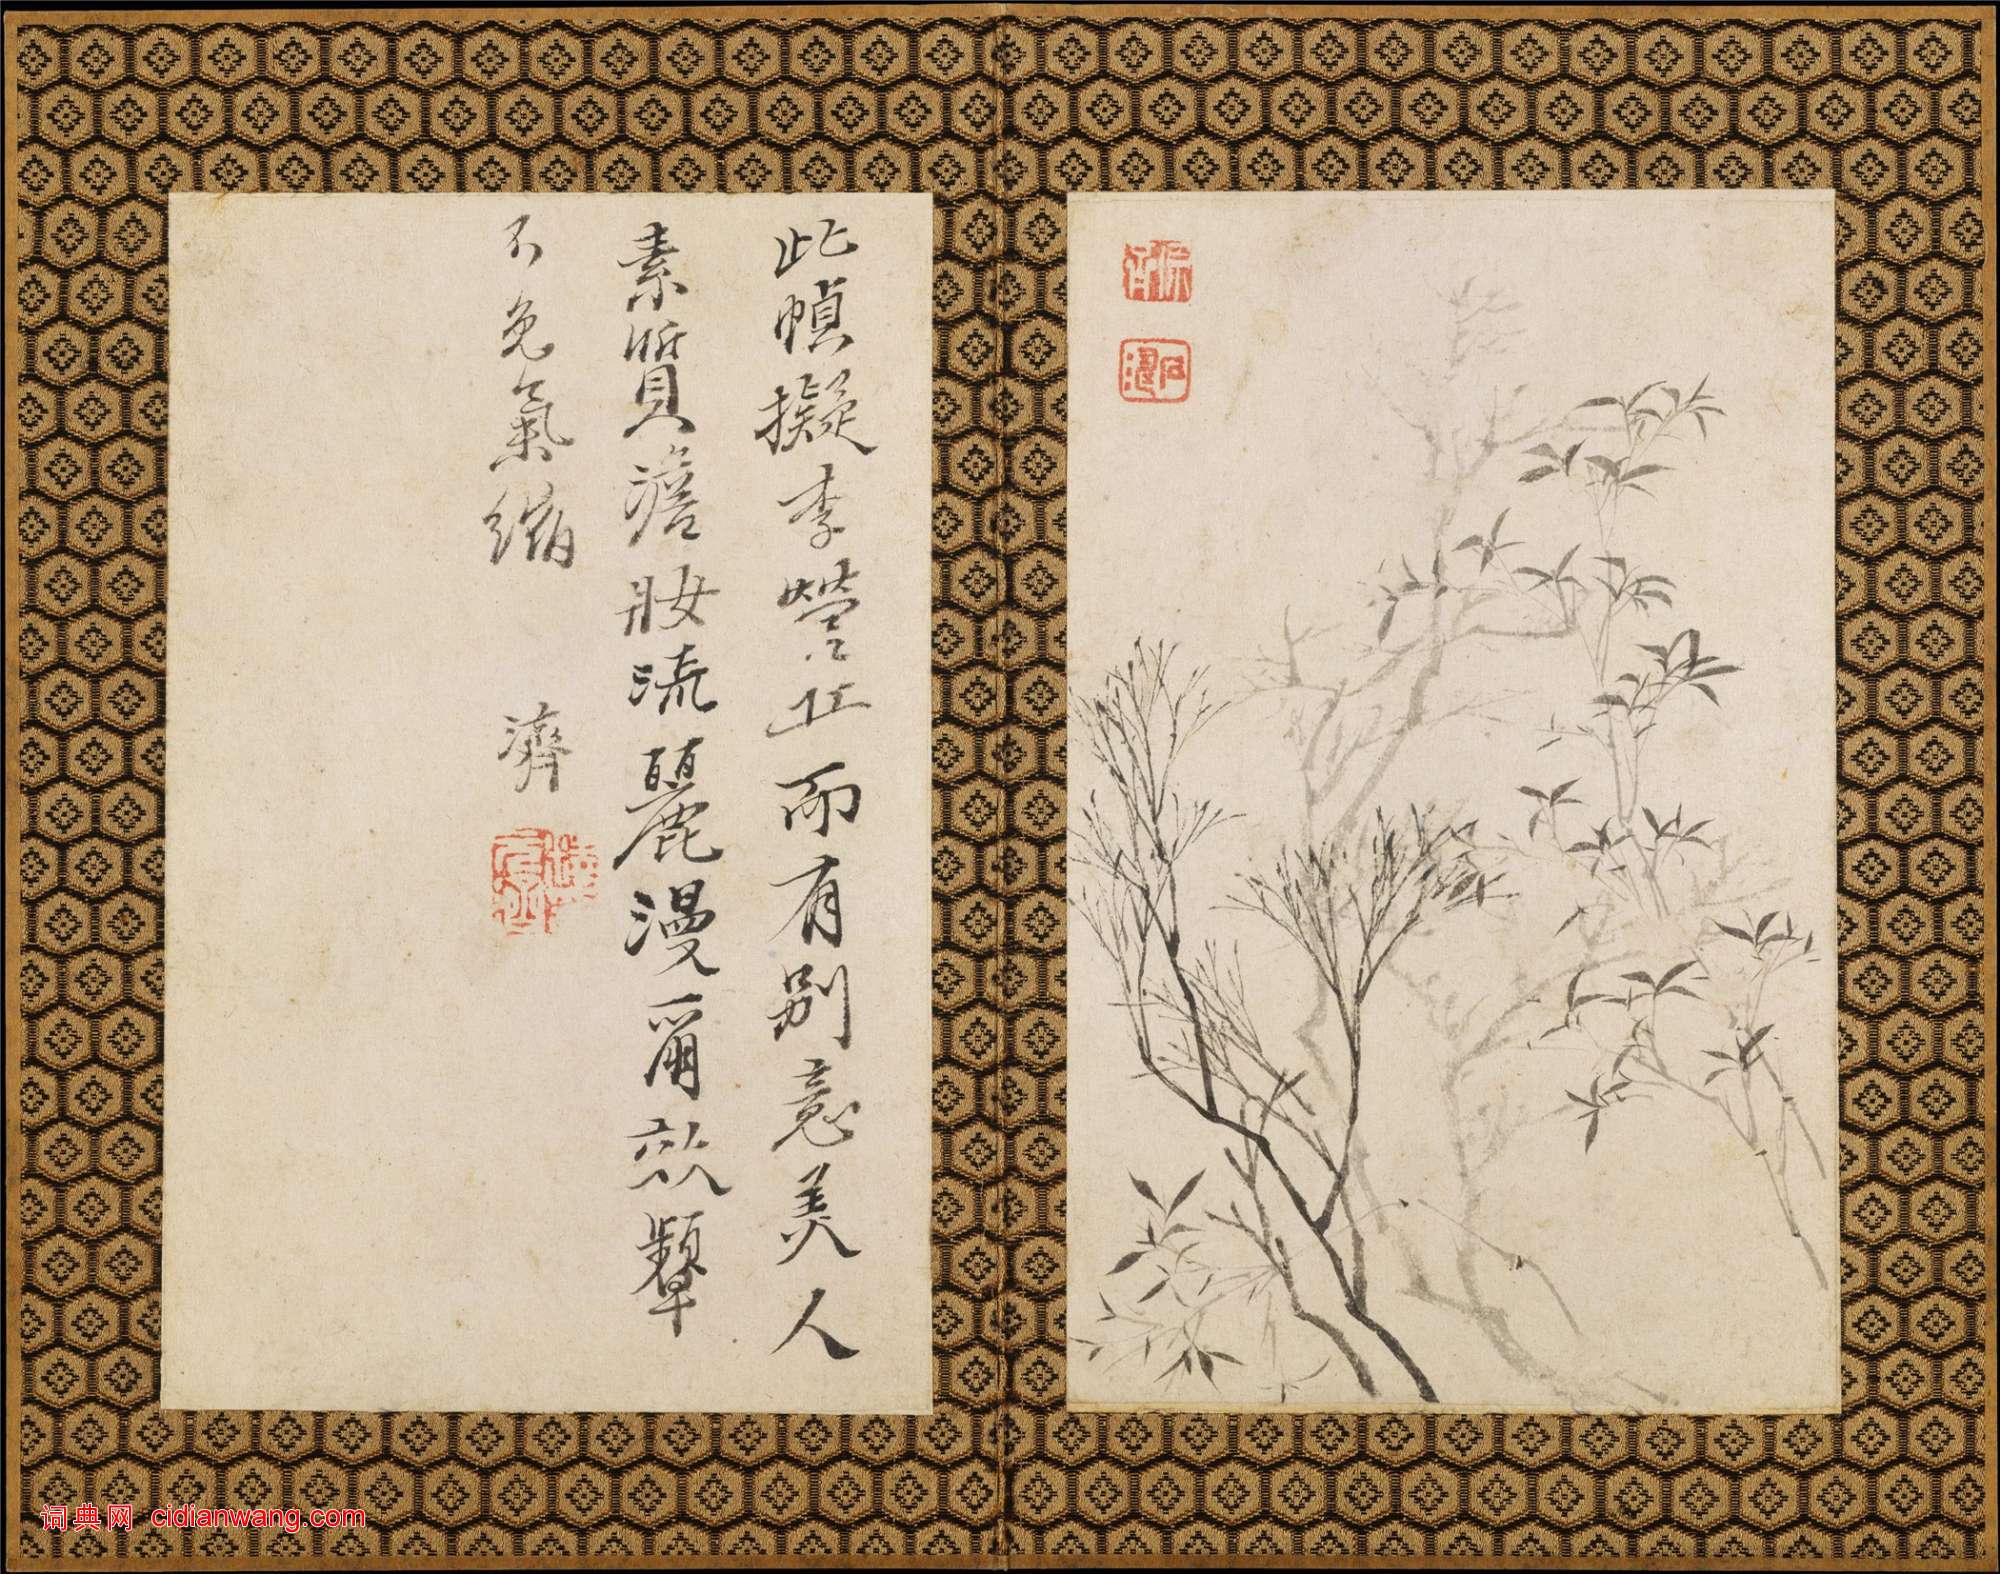 此幀擬李營丘而有別意美人
素質澹妝流麗漫爾效顰
不免氣縮
濟
词典网 cidianwang.com